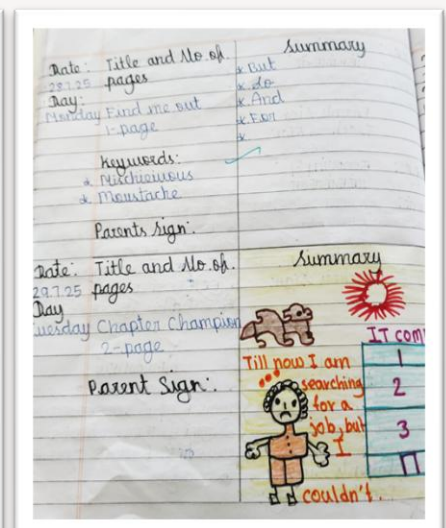 Date: Title and No. of. pages
28.7.25
Day:
Monday Find me out
1-page
Keywords:
* Mischievous
* Moustache
Parents Sign:
Summary
* But
* So
* And
* For
*
Date: Title and No. of. pages
29.7.25
Day
Tuesday Chapter Champion
2-page
Parent Sign:
Summary
IT com
1
2
3
Till now I am
searching
for a
job, but
I
couldn't.